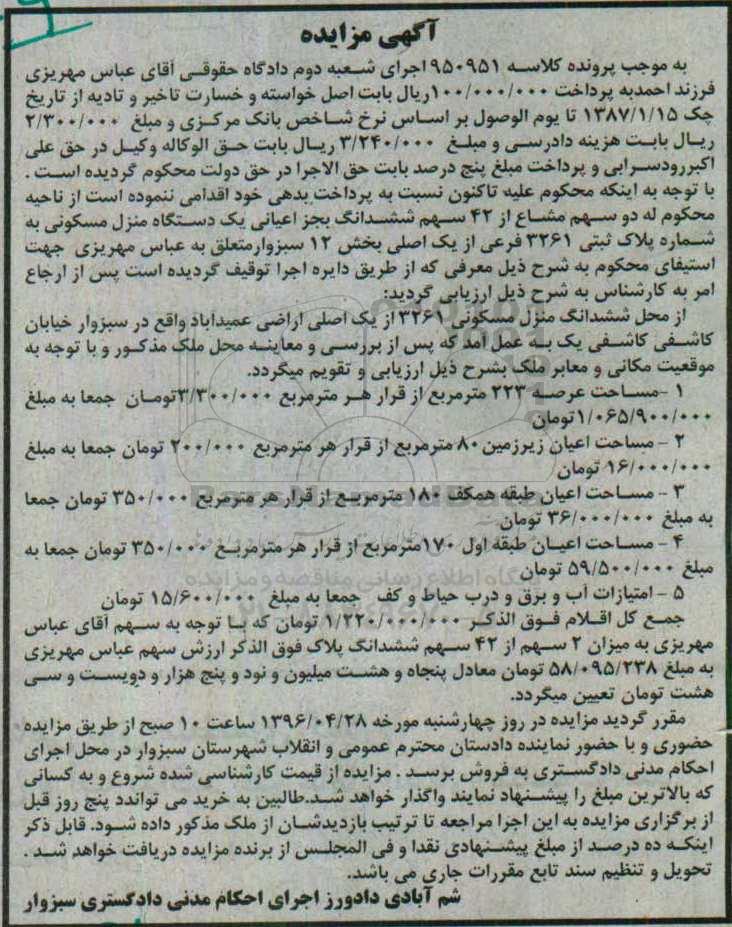 آگهی مزایده
به موجب پرونده کلاسه ۹۵۰۹۵۱ اجرای شعبه دوم دادگاه حقوقی آقای عباس مهریزی
فرزند احمدبه پرداخت ۱۰۰/۰۰۰/۰۰۰ریال بابت اصل خواسته و خسارت تاخیر و تادیه از تاریخ
چک ۱۳۸۷/۱/۱۵ تا یوم الوصول بر اساس نرخ شاخص بانک مرکزی و مبلغ ۲/۳۰۰/۰۰۰
ریال بابت هزینه دادرسی و مبلغ ۳/۲۴۰/۰۰۰ ریال بابت حق الوکاله وکیل در حق علی
اکبررودسرابی و پرداخت مبلغ پنج درصد بابت حق الاجرا در حق دولت محکوم گردیده است .
با توجه به اینکه محکوم علیه تاکنون نسبت به پرداخت بدهی خود اقدامی ننموده است از ناحیه
محکوم له دو سهم مشاع از ۴۲ سهم ششدانگ بجز اعیانی یک دستگاه منزل مسکونی به
شماره پلاک ثبتی ۳۲۶۱ فرعی از یک اصلی بخش ۱۲ سبزوارمتعلق به عباس مهریزی جهت
استیفای محکوم به شرح ذیل معرفی که از طریق دایره اجرا توقیف گردیده است پس از ارجاع
امر به کارشناس به شرح ذیل ارزیابی گردید:
از محل ششدانگ منزل مسکونی ۳۲۶۱ از یک اصلی اراضی عمیدآباد واقع در سبزوار خیابان
کاشفی کاشفی یک به عمل آمد که پس از بررسی و معاینه محل ملک مذکور و با توجه به
موقعیت مکانی و معابر ملک بشرح ذیل ارزیابی و تقویم میگردد.
۱ -مساحت عرصه ۲۲۳ مترمربع از قرار هر مترمربع ۳/۳۰۰/۰۰۰تومان جمعا به مبلغ
۱/۰۶۵/۹۰۰/۰۰۰تومان
۲ - مساحت اعیان زیرزمین۸۰ مترمربع از قرار هر مترمربع ۲۰۰/۰۰۰ تومان جمعا به مبلغ
۱۶/۰۰۰/۰۰۰ تومان
۳ - مساحت اعیان طبقه همکف ۱۸۰ مترمربع از قرار هر مترمربع ۳۵۰/۰۰۰ تومان جمعا
به مبلغ ۳۶/۰۰۰/۰۰۰ تومان
۴ - مساحت اعیان طبقه اول ۱۷۰مترمربع از قرار هر مترمربع ۳۵۰/۰۰۰ تومان جمعا به
مبلغ ۵۹/۵۰۰/۰۰۰ تومان
۵ - امتیازات آب و برق و درب حیاط و کف جمعا به مبلغ ۱۵/۶۰۰/۰۰۰ تومان
جمع کل اقلام فوق الذکر ۱/۲۲۰/۰۰۰/۰۰۰ تومان که با توجه به سهم آقای عباس
مهریزی به میزان ۲ سهم از ۴۲ سهم ششدانگ پلاک فوق الذکر ارزش سهم عباس مهریزی
به مبلغ ۵۸/۰۹۵/۲۳۸ تومان معادل پنجاه و هشت میلیون و نود و پنج هزار و دویست و سی
هشت تومان تعیین میگردد.
مقرر گردید مزایده در روز چهارشنبه مورخه ۱۳۹۶/۰۴/۲۸ ساعت ۱۰ صبح از طریق مزایده
حضوری و با حضور نماینده دادستان محترم عمومی و انقلاب شهرستان سبزوار در محل اجرای
احکام مدنی دادگستری به فروش برسد . مزایده از قیمت کارشناسی شده شروع و به کسانی
که بالاترین مبلغ را پیشنهاد نمایند واگذار خواهد شد.طالبین به خرید می تواندد پنج روز قبل
از برگزاری مزایده به این اجرا مراجعه تا ترتیب بازدیدشان از ملک مذکور داده شود. قابل ذکر
اینکه ده درصد از مبلغ پیشنهادی نقدا و فی المجلس از برنده مزایده دریافت خواهد شد .
تحویل و تنظیم سند تابع مقررات جاری می باشد.
شم آبادی دادورز اجرای احکام مدنی دادگستری سبزوار